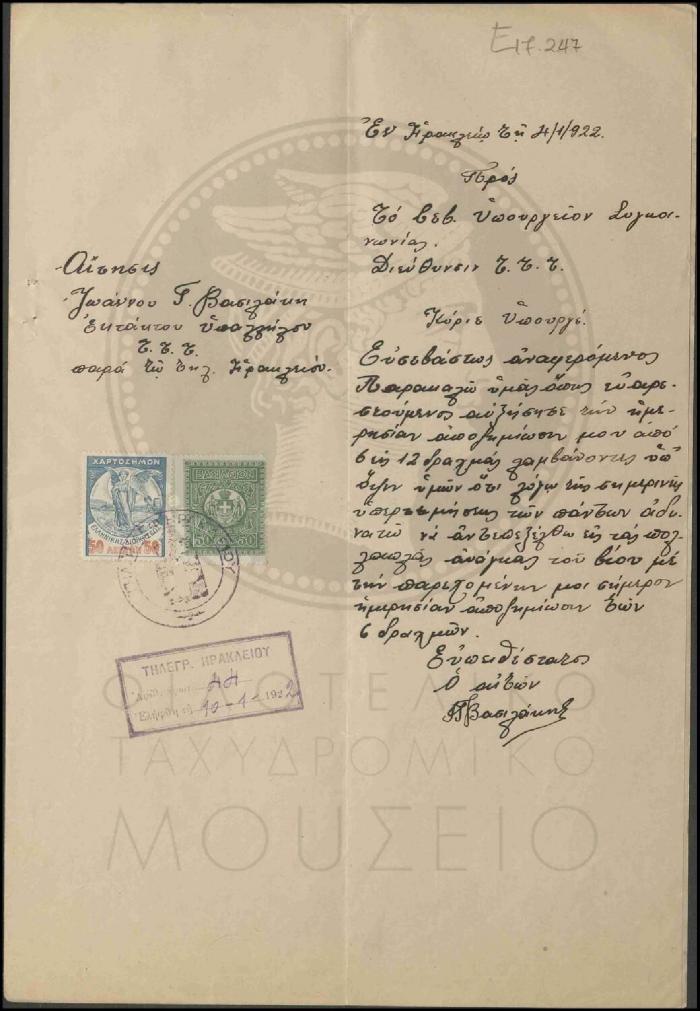 Ε17.247
Ἐν Ἡρακλείῳ τῇ 4/1/922.
Πρός
Τό Σεβ. Ὑπουργεῖον Συγκοι-
νωνίας.
Διεύθυνσιν Τ.Τ.Τ.
Αἴτησις
Ἰωάννου Γ. Βασιλάκη
ἐκτάκτου ὑπαλλήλου
Τ.Τ.Τ.
παρά τῷ τηλ. Ἡρακλείου.
Κύριε Ὑπουργέ.
Εὐσεβάστως ἀναφερόμενος
Παρακαλῶ ὑμᾶς ὅπως εὐαρε-
στούμενος αὐξήσητε τήν ἡμε-
ρησίαν ἀποζημίωσιν μου ἀπό
6 εἰς 12 δραχμάς λαμβάνοντες ὑπ'
ὄψιν ὑμῶν ὅτι λόγῳ τῆς σημερινῆς
ὑπερτιμήσεως τῶν πάντων ἀδυ-
νατῶ νά ἀντεπεξέλθω εἰς τάς πολ-
λαπλάς ἀνάγκας τοῦ βίου μέ
τήν παρεχομένην μοι σήμερον
ἡμερησίαν ἀποζημίωσιν τῶν
6 δραχμῶν.
Εὐπειθέστατος
Ὁ αἰτῶν
Βασιλάκης
ΧΑΡΤΟΣΗΜΟΝ
ΕΛΛΗΝΙΚΗΣ ΔΙΟΙΚΗΣΕΩΣ
50 ΛΕΠΤΑ 50
50 50
ΤΗΛΕΓΡ. ΗΡΑΚΛΕΙΟΥ
44
Ἐλήφθη τῇ 10-1-1922
ΦΙΛΟΤΕΛΙΚΟ
ΤΑΧΥΔΡΟΜΙΚΟ
ΜΟΥΣΕΙΟ